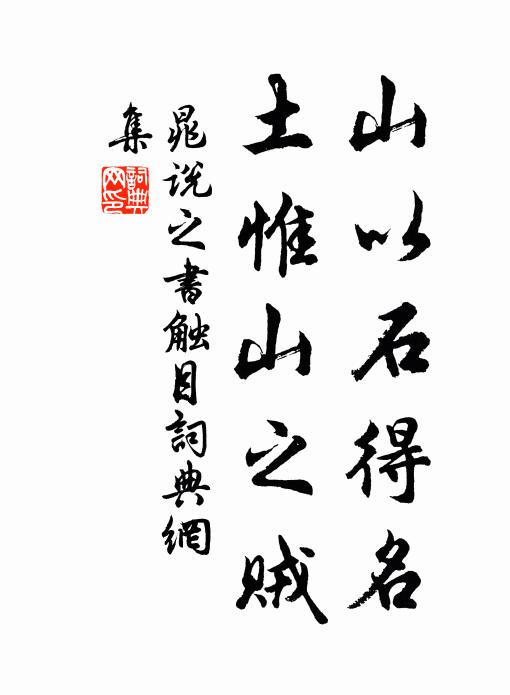 山以石得名
土惟山之賊
晁说之書觸目詞典網
集
詞典网印